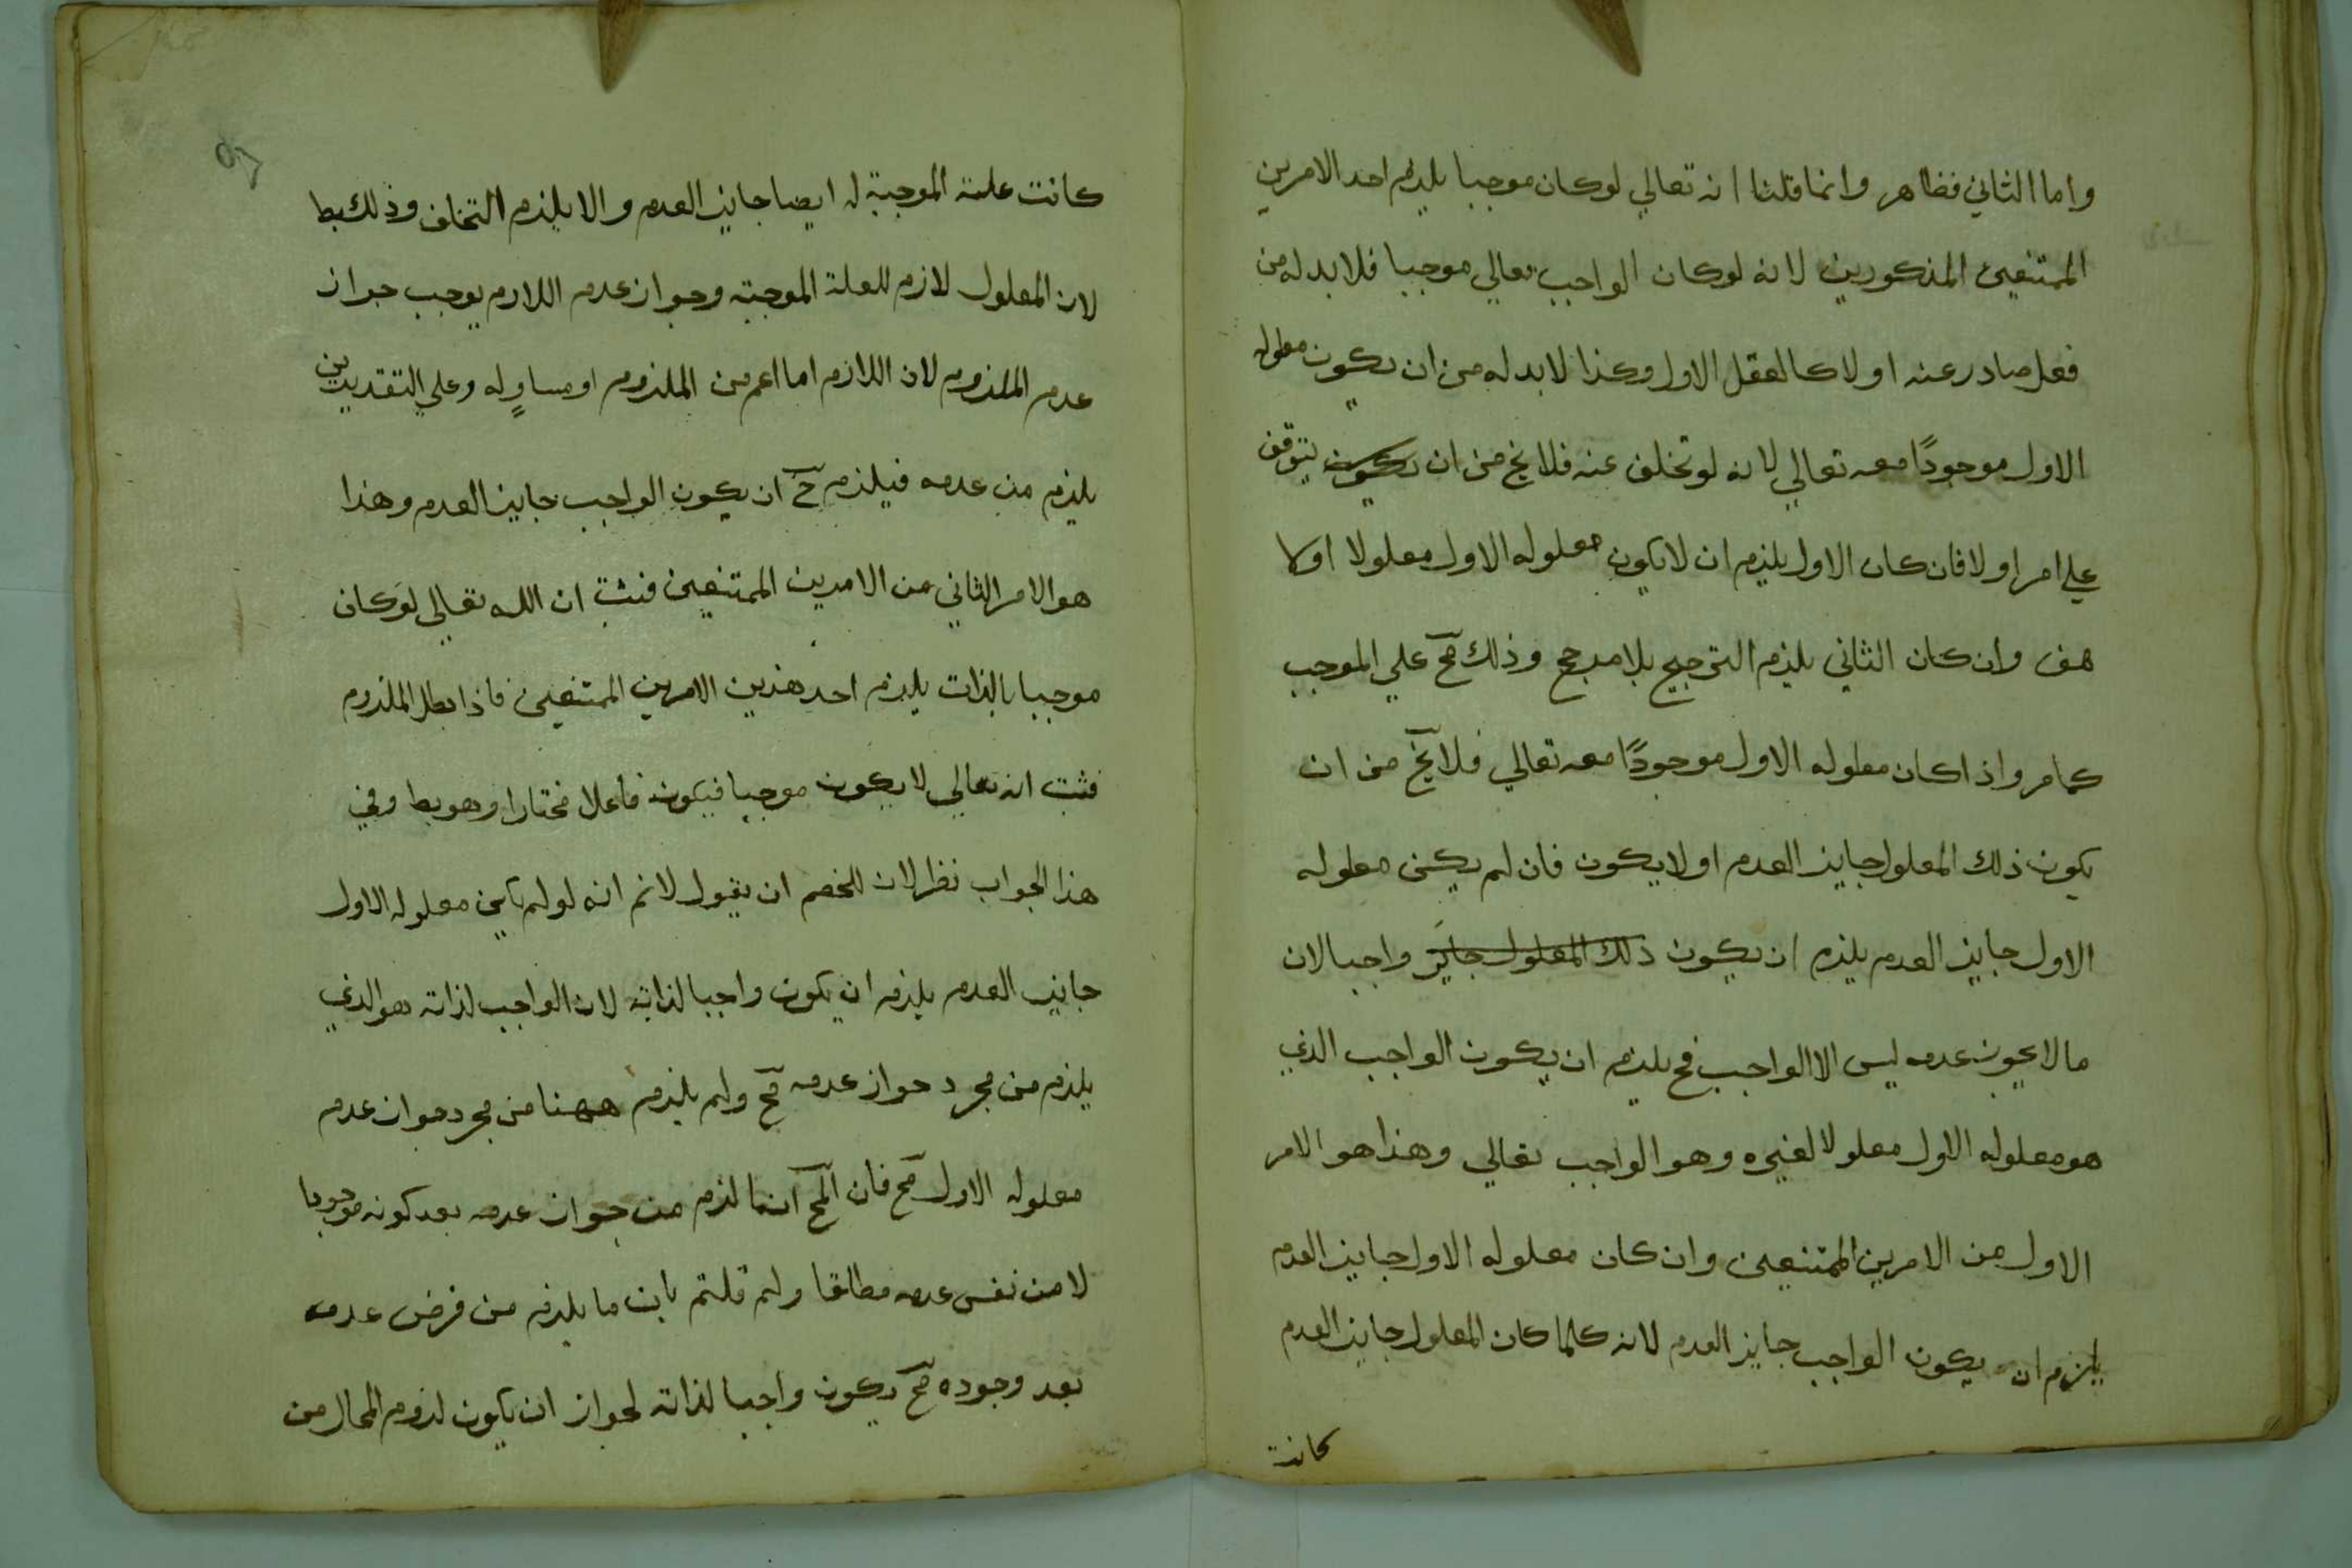 واما الثاني فظاهر وانما قلنا انه تعالي لوكان موجبا يلزم احد الامرين
الممتنعين المذكورين لانه لوكان الواجب تعالي موجبا فلا بد له من
فعل صادر عنه اولا كالعقل الاول وكذا لا بد له من ان يكون معلوله
الاول موجودًا معه تعالي لانه لو تخلف عنه فلا يخ من ان يكون يتوقف
علي امر او لا فان كان الاول يلزم ان لا يكون معلوله الاول معلولا اولا
هف وان كان الثاني يلزم الترجيح بلا مرجح وذلك مح علي الموجب
كما مر واذا كان معلوله الاول موجودًا معه تعالي فلا يخ من ان
يكون ذلك المعلول جايز العدم او لا يكون فان لم يكن معلوله
الاول جايز العدم يلزم ان يكون ذلك المعلول جايز واجبا لان
ما لا يجوز عدمه ليس الا الواجب فح يلزم ان يكون الواجب الذي
هو معلوله الاول معلولا لغيره وهو الواجب تعالي وهذا هو الامر
الاول من الامرين الممتنعين وان كان معلوله الاول جايز العدم
يلزم ان يكون الواجب جايز العدم لانه كلما كان المعلول جايز العدم
كانت
كانت علته الموجبة له ايضا جايز العدم والا يلزم التخلف وذلك بط
لان المعلول لازم للعلة الموجبة وجواز عدم اللازم يوجب جواز
عدم الملزوم لان اللازم اما اعم من الملزوم او مساوٍ له وعلي التقديرين
يلزم من عدمه فيلزم ح ان يكون الواجب جايز العدم وهذا
هو الامر الثاني من الامرين الممتنعين فثبت ان الله تعالي لوكان
موجبا بالذات يلزم احد هذين الامرين الممتنعين فاذا بطل الملزوم
فثبت انه تعالي لا يكون موجبا فيكون فاعلا مختارا وهو بط وفي
هذا الجواب نظر لان للخصم ان يقول لانم انه لو لم يكن معلوله الاول
جايز العدم يلزم ان يكون واجبا لذاته لان الواجب لذاته هو الذي
يلزم من مجرد جواز عدمه مح ولم يلزم ههنا من مجرد جواز عدم
معلوله الاول مح فان المح انما لزم من جواز عدمه بعد كونه موجودا
لا من نفس عدمه مطلقا ولم قلتم بان ما يلزم من فرض عدمه
بعد وجوده مح يكون واجبا لذاته لجواز ان يكون لزوم المحال من